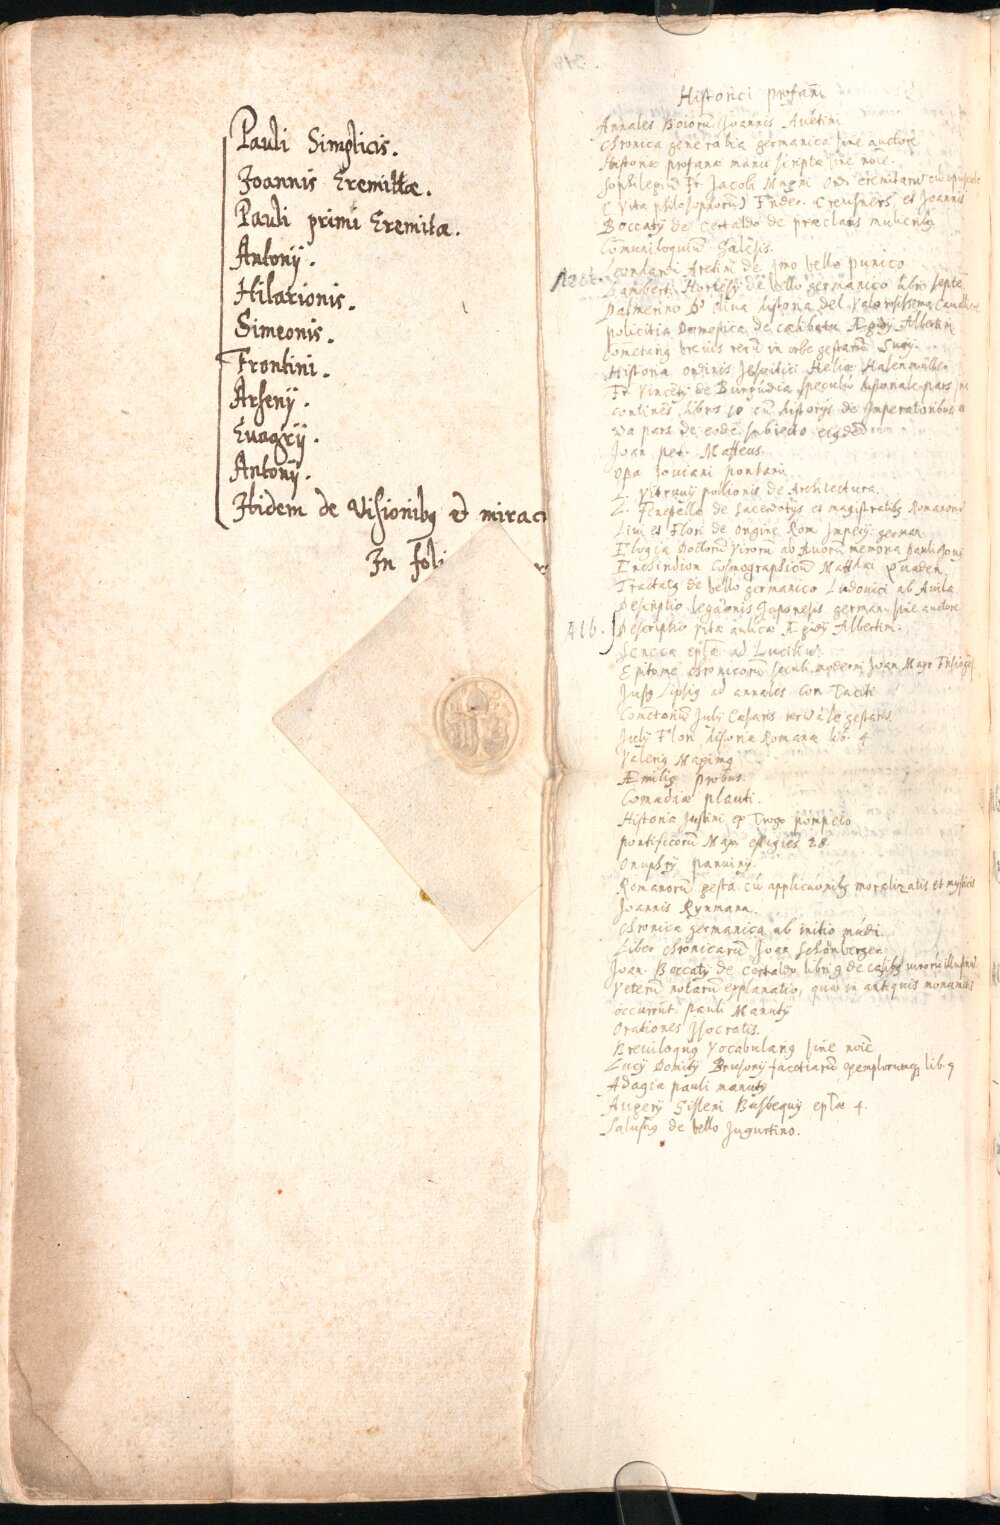 Pauli Simplicis.
Joannis Eremittæ.
Pauli primi Eremitæ.
Antonij.
Hilarionis.
Simeonis.
Frontini.
Arsenij.
Euagrij.
Antonij.
Itidem de Visionibꝫ et mirac
In foli
Historici profani
Annales Boiorū Joannis Auētini
Chronica generalia germanica sine auctore
Historiæ profanæ manu scriptæ sine noīe.
Sophilegiū Fr Jacobi Magni Ord. eremitarū
Vita philosophorū Frider. Creusners, et Joannis
Boccatij de Certaldo de præclaris mulieribꝫ
Comuniloquiū Galesis.
Leonardi Aretini de bello punico
Lamberti Hortesij de bello germanico libri septē
Palmerino D' Oliua historia del Valorosissimo Caualiere
Policitia Domestica de cælibatu Ægidij Albertini
Cometarig breuis rerū in orbe gestarū Surij.
Historia ordinis Jesuitici Heliæ Hasenmüller
Fr Vincētij de Burgūdia speculū historiale pars
continēs libros 10 cū historijs de Imperatoribus
2a pars de eodē subiecto eiusdē
Joan pet. Maffeus.
Opa Jouiani pontani
L. Vitruuij pollionis de Architectura.
L. Fenestella de Sacerdotijs et magistratibꝫ Romanorū
Liui et Flori de origine Rom Imperij german.
Elogia Doctorū Virorū ab Auorū memoria pauli Jouij
Enchiridion Cosmographicū Matthæi Quaden
Tractatꝫ de bello germanico Ludouici ab Auila
Descriptio legationis Japonesis german. sine auctore
416. Descriptio vitæ aulicæ Ægidij Albertini.
Senecæ eplæ ad Luciliū.
Epitome chronicorū seculi moderni Joan Mayr Frisingēs
Justꝫ Lipsig ad annales Cor. Taciti
Cometariū Julij Cæsaris rerū a se gestarū.
Julij Flori historiæ Romanæ lib. 4
Valerig Maximg
Æmilig probus.
Comædiæ plauti.
Historia Justini ex Trogo pompeio
Pontificorū Max. effigies 28.
Onuphrij panuinij.
Romanorū gesta cū applicationibꝫ moralizatis et mysticis
Joannis Rynmann.
Chronica germanica ab initio mūdi.
Liber chronicarū Joan Schönberger
Joan Boccatij de Certaldo libri 9 de casibꝫ virorū illustriū
Veterū notarū explanatio, quæ in antiquis monumētis
occurrūt pauli Manutij
Orationes Isocratis.
Breuiloquꝫ Vocabularig sine noīe
Lucij Domitij Brusonij facetiarū exemplorumqꝫ lib. 7
Adagia pauli manutij
Augerij Gisleni Busbequij eplæ 4.
Salustig de bello Jugurtino.